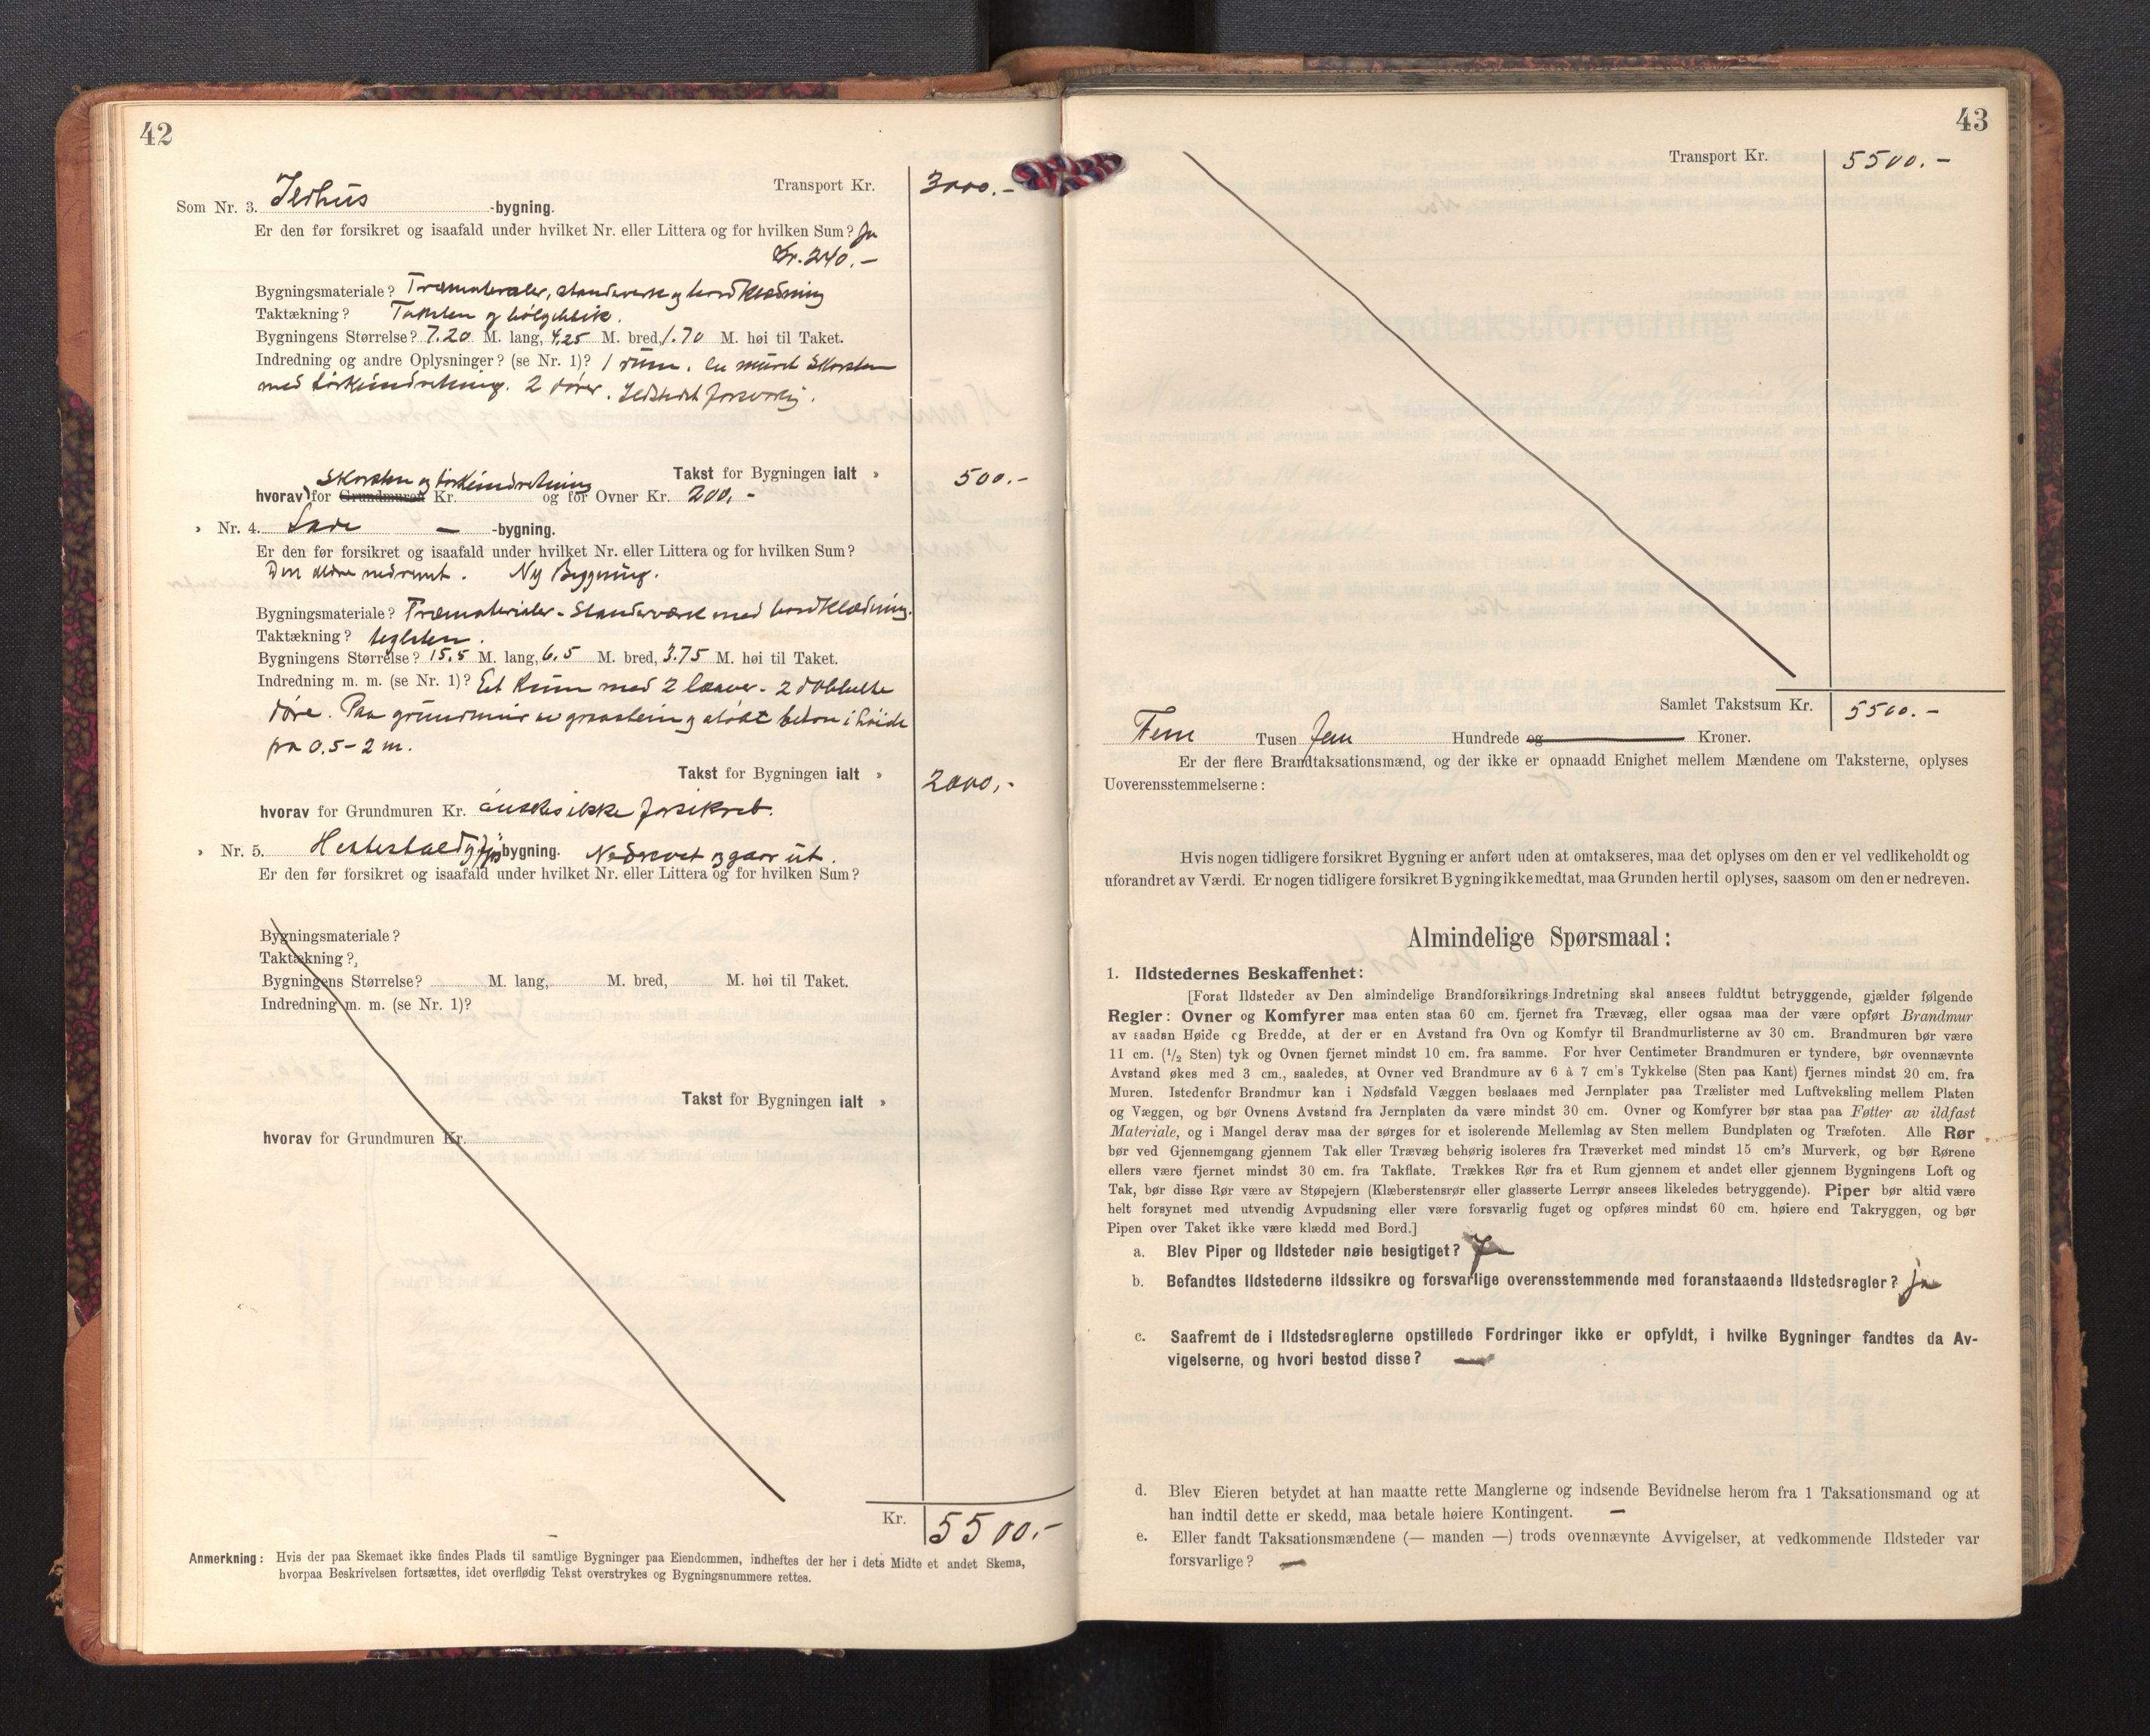 42
Transport Kr. 3000.-
Som Nr. 3. Ildhus -bygning.
Er den før forsikret og isaafald under hvilket Nr. eller Littera og for hvilken Sum? Ja
Kr. 240.-
Bygningsmateriale? Træmaterialer, standverk og bordklædning
Taktækning? Taksten og bølgeblik.
Bygningens Størrelse? 7.20 M. lang, 4.25 M. bred, 1.70 M. høi til Taket.
Indredning og andre Oplysninger? (se Nr. 1)? 1 rum. En muret Skorsten
med tørkeindretning. 2 dører. Ildstedet forsvarlig.
Takst for Bygningen ialt » 500.-
Skorsten og tørkeindretning
hvorav for Grundmuren Kr. og for Ovner Kr. 200.-
» Nr. 4. Lade — -bygning.
Er den før forsikret og isaafald under hvilket Nr. eller Littera og for hvilken Sum?
Den ældre nedrevet. Ny Bygning.
Bygningsmateriale? Træmaterialer - Standværk med bordklædning.
Taktækning? teglsten.
Bygningens Størrelse? 15.5 M. lang, 6.5 M. bred, 3.75 M. høi til Taket.
Indredning m. m. (se Nr. 1)? Et Rum med 2 laaver - 2 dobbelte
døre. Paa grundmur av graastein og støbt beton i høide
fra 0.5-2 m.
Takst for Bygningen ialt » 2000,-
hvorav for Grundmuren Kr. ønskes ikke forsikret.
» Nr. 5. Hestestald og fjøs -bygning. Nedrevet og gaar ut.
Er den før forsikret og isaafald under hvilket Nr. eller Littera og for hvilken Sum?
Bygningsmateriale?
Taktækning?
Bygningens Størrelse? M. lang, M. bred, M. høi til Taket.
Indredning m. m. (se Nr. 1)?
Takst for Bygningen ialt »
hvorav for Grundmuren Kr.
Kr. 5500.-
Anmerkning: Hvis der paa Skemaet ikke findes Plads til samtlige Bygninger paa Eiendommen, indheftes der her i dets Midte et andet Skema,
hvorpaa Beskrivelsen fortsættes, idet overflødig Tekst overstrykes og Bygningsnummere rettes.
43
Transport Kr. 5500.-
Samlet Takstsum Kr. 5500.-
Fem Tusen fem Hundrede og Kroner.
Er der flere Brandtaksationsmænd, og der ikke er opnaadd Enighet mellem Mændene om Taksterne, oplyses
Uoverensstemmelserne:
Hvis nogen tidligere forsikret Bygning er anført uden at omtakseres, maa det oplyses om den er vel vedlikeholdt og
uforandret av Værdi. Er nogen tidligere forsikret Bygning ikke medtat, maa Grunden hertil oplyses, saasom om den er nedreven.
Almindelige Spørsmaal:
1. Ildstedernes Beskaffenhet:
[Forat Ildsteder av Den almindelige Brandforsikrings-Indretning skal ansees fuldtut betryggende, gjælder følgende
Regler: Ovner og Komfyrer maa enten staa 60 cm. fjernet fra Trævæg, eller ogsaa maa der være opført Brandmur
av saadan Høide og Bredde, at der er en Avstand fra Ovn og Komfyr til Brandmurlisterne av 30 cm. Brandmuren bør være
11 cm. (1/2 Sten) tyk og Ovnen fjernet mindst 10 cm. fra samme. For hver Centimeter Brandmuren er tyndere, bør ovennævnte
Avstand økes med 3 cm., saaledes, at Ovner ved Brandmure av 6 à 7 cm's Tykkelse (Sten paa Kant) fjernes mindst 20 cm. fra
Muren. Istedenfor Brandmur kan i Nødsfald Væggen beslaaes med Jernplater paa Trælister med Luftveksling mellem Platen
og Væggen, og bør Ovnens Avstand fra Jernplaten da være mindst 30 cm. Ovner og Komfyrer bør staa paa Føtter av ildfast
Materiale, og i Mangel derav maa der sørges for et isolerende Mellemlag av Sten mellem Bundplaten og Træfoten. Alle Rør
bør ved Gjennemgang gjennem Tak eller Trævæg behørig isoleres fra Træverket med mindst 15 cm's Murverk, og bør Rørene
ellers være fjernet mindst 30 cm. fra Takflate. Trækkes Rør fra et Rum gjennem et andet eller gjennem Bygningens Loft og
Tak, bør disse Rør være av Støpejern (Klæberstensrør eller glasserte Lerrør ansees likeledes betryggende). Piper bør altid være
helt forsynet med utvendig Avpudsning eller være forsvarlig fuget og opføres mindst 60 cm. høiere end Takryggen, og bør
Pipen over Taket ikke være klædd med Bord.]
a. Blev Piper og Ildsteder nøie besigtiget? Ja
b. Befandtes Ildstederne ildssikre og forsvarlige overensstemmende med foranstaaende Ildstedsregler? Ja
c. Saafremt de i Ildstedsreglerne opstillede Fordringer ikke er opfyldt, i hvilke Bygninger fandtes da Av-
vigelserne, og hvori bestod disse? —
d. Blev Eieren betydet at han maatte rette Manglerne og indsende Bevidnelse herom fra 1 Taksationsmand og at
han indtil dette er skedd, maa betale høiere Kontingent. —
e. Eller fandt Taksationsmændene (— manden —) trods ovennævnte Avvigelser, at vedkommende Ildsteder var
forsvarlige? —